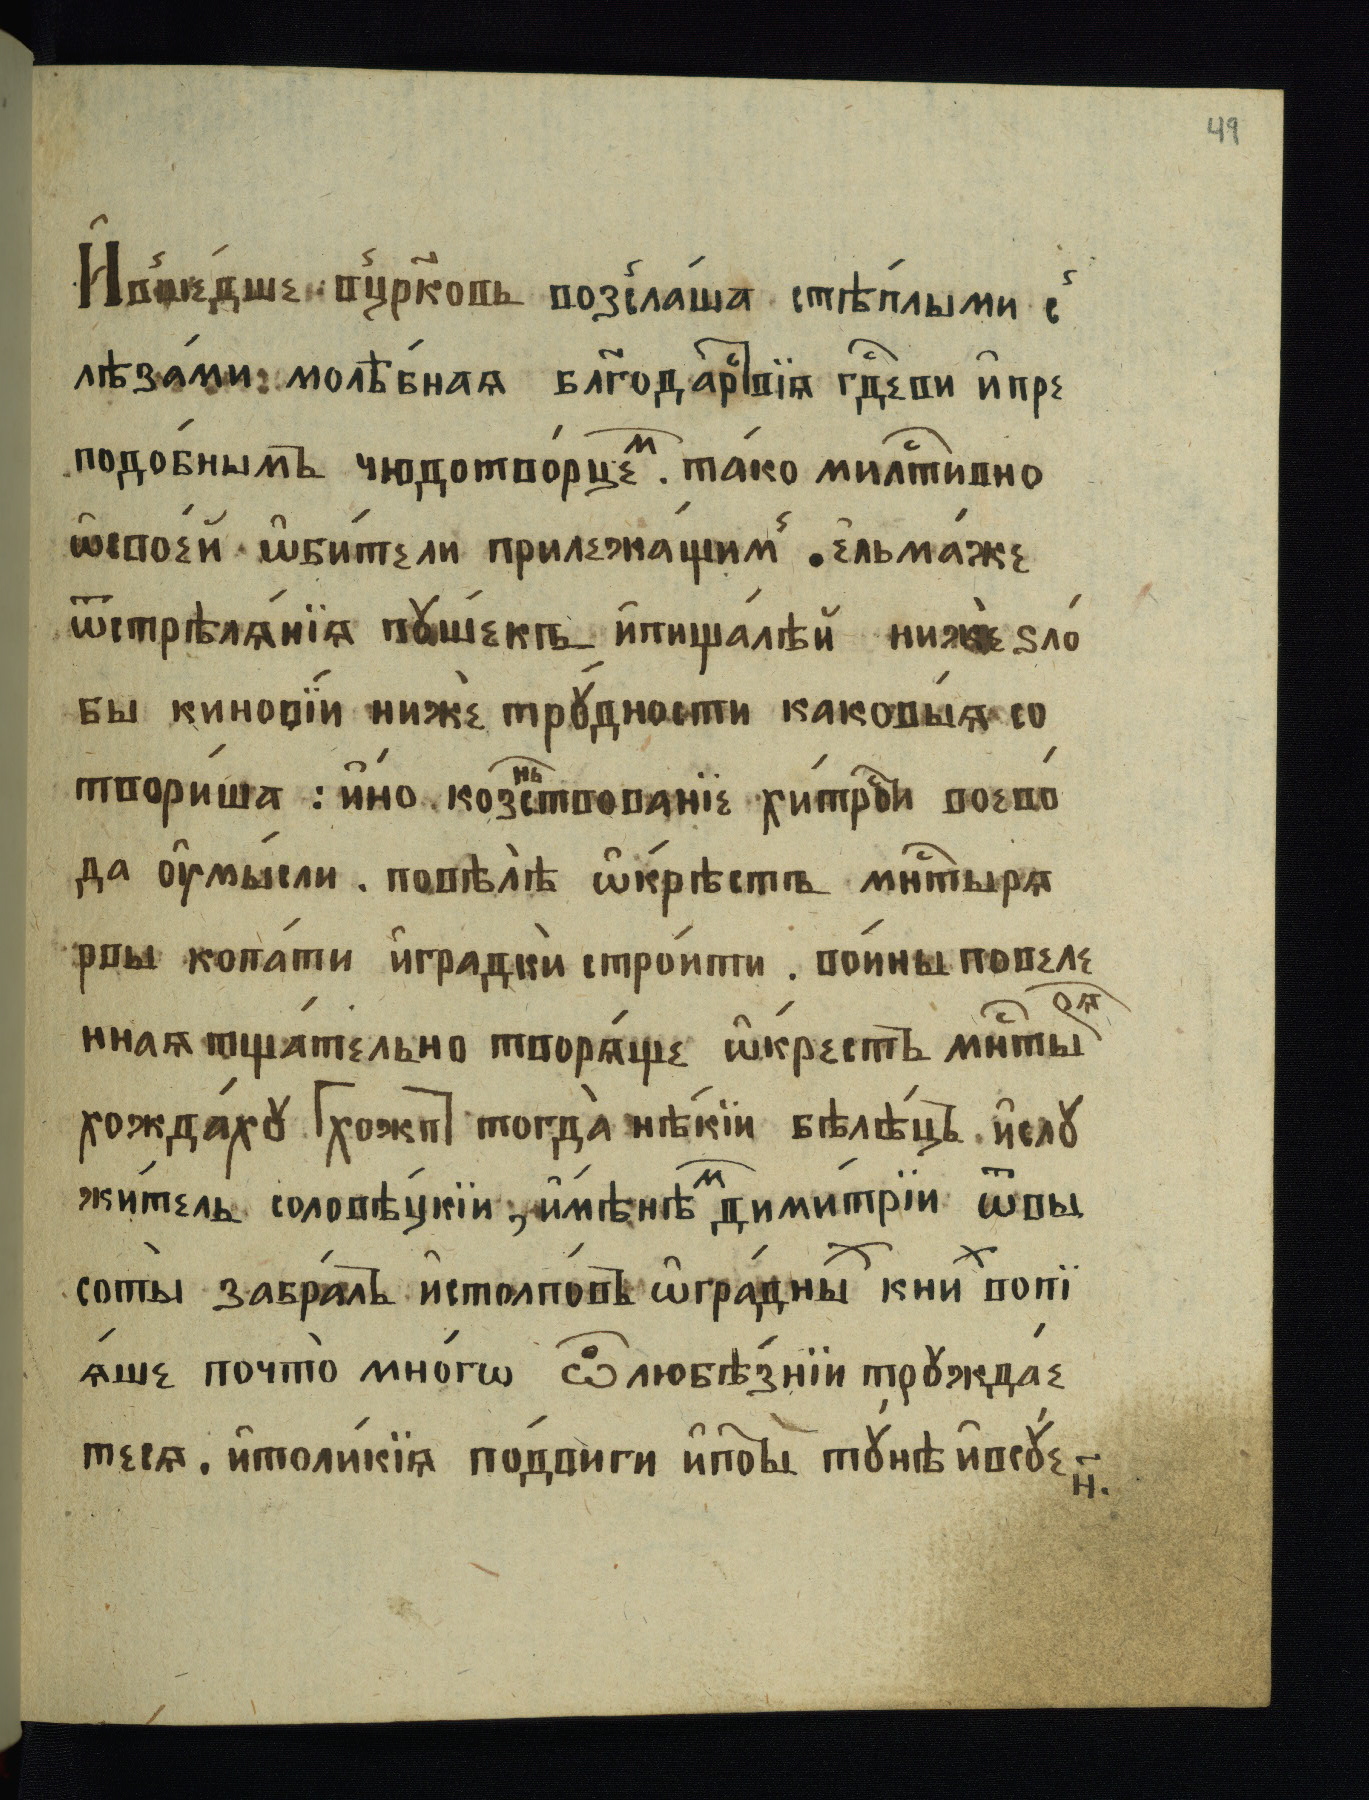 49
И҆ вше́дше в̾ цр҃ковь возсла́ша с тѣ́плыми с̾
лѣза́ми моле́бная блгⷣода́рствїя гдⷭ҇еви и҆ пре
подо́бнымъ чюдотво́рцеⷨ. та́ко млⷭ҇тивно
ѡ҆ свое́й ѡ҆би́тели прилежа́щим̾. є҆льма́же
ѿ стрѣля́нїя пꙋ́шекъ и҆ пища́лѣй нижѐ ѕло́
бы кинові́и нижѐ трꙋ́дности каковы́я со
твори́ша : и҆́но ко́знⸯствованїе хи́трⷭ҇ои воево́
да ᲂу҆мы́сли. повелѣ̀ ѡ҆́крѣстъ мнⷭ҇тыря
рвы копа́ти и҆ градкѝ стро́ити. во́ины повеле
нная тща́тельно творя́ще ѡ҆́крестъ мнⷭ҇тыря
хожда́хꙋ [хожⷣ] тогда̀ нѣ́кїи бѣле́цъ и҆ слꙋ
жи́тель солове́цкїи, и҆́мѣнѣⷨ дими́трїи ѿ вы
соты̀ забра́лъ и҆ столпо́въ ѡ҆гра́дныⷯ к ниⷨ вопї
ѧ́ше почто̀ мно́гѡ ѽ любе́знїи трꙋжда́е
теся. и҆ толи́кїя по́двиги и҆ по́ты тꙋ́нѣ и҆ всꙋ́е
н.